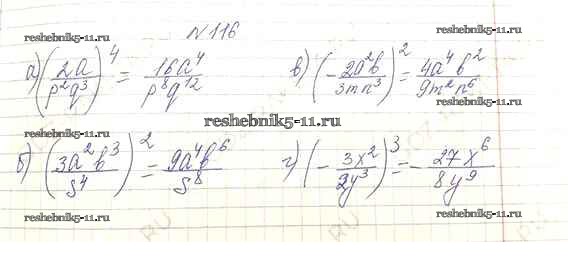 № 116
reshebnik5-11.ru reshebnik5-11.ru
а) (2a/p²q³)⁴ = 16a⁴/p⁸q¹² в) (-2a²b/3mn³)² = 4a⁴b²/9m²n⁶
reshebnik5-11.ru
б) (3a²b³/s⁴)² = 9a⁴b⁶/s⁸ г) (-3x²/2y³)³ = -27x⁶/8y⁹
reshebnik5-11.ru reshebnik5-11.ru